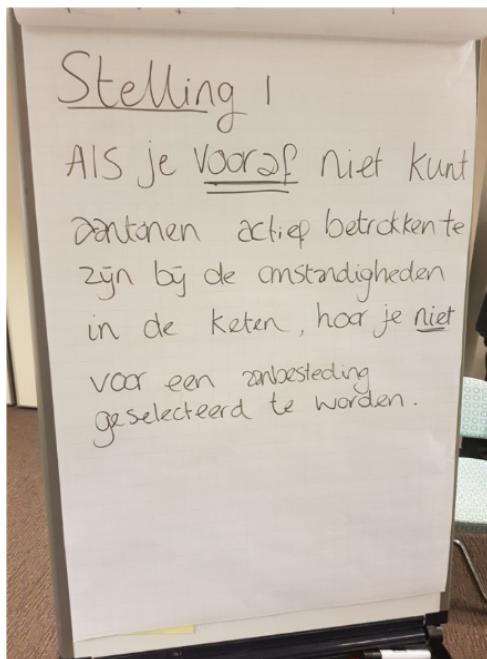 Stelling 1
Als je vooraf niet kunt
aantonen actief betrokken te
zijn bij de omstandigheden
in de keten, hoor je niet
voor een aanbesteding
geselecteerd te worden.